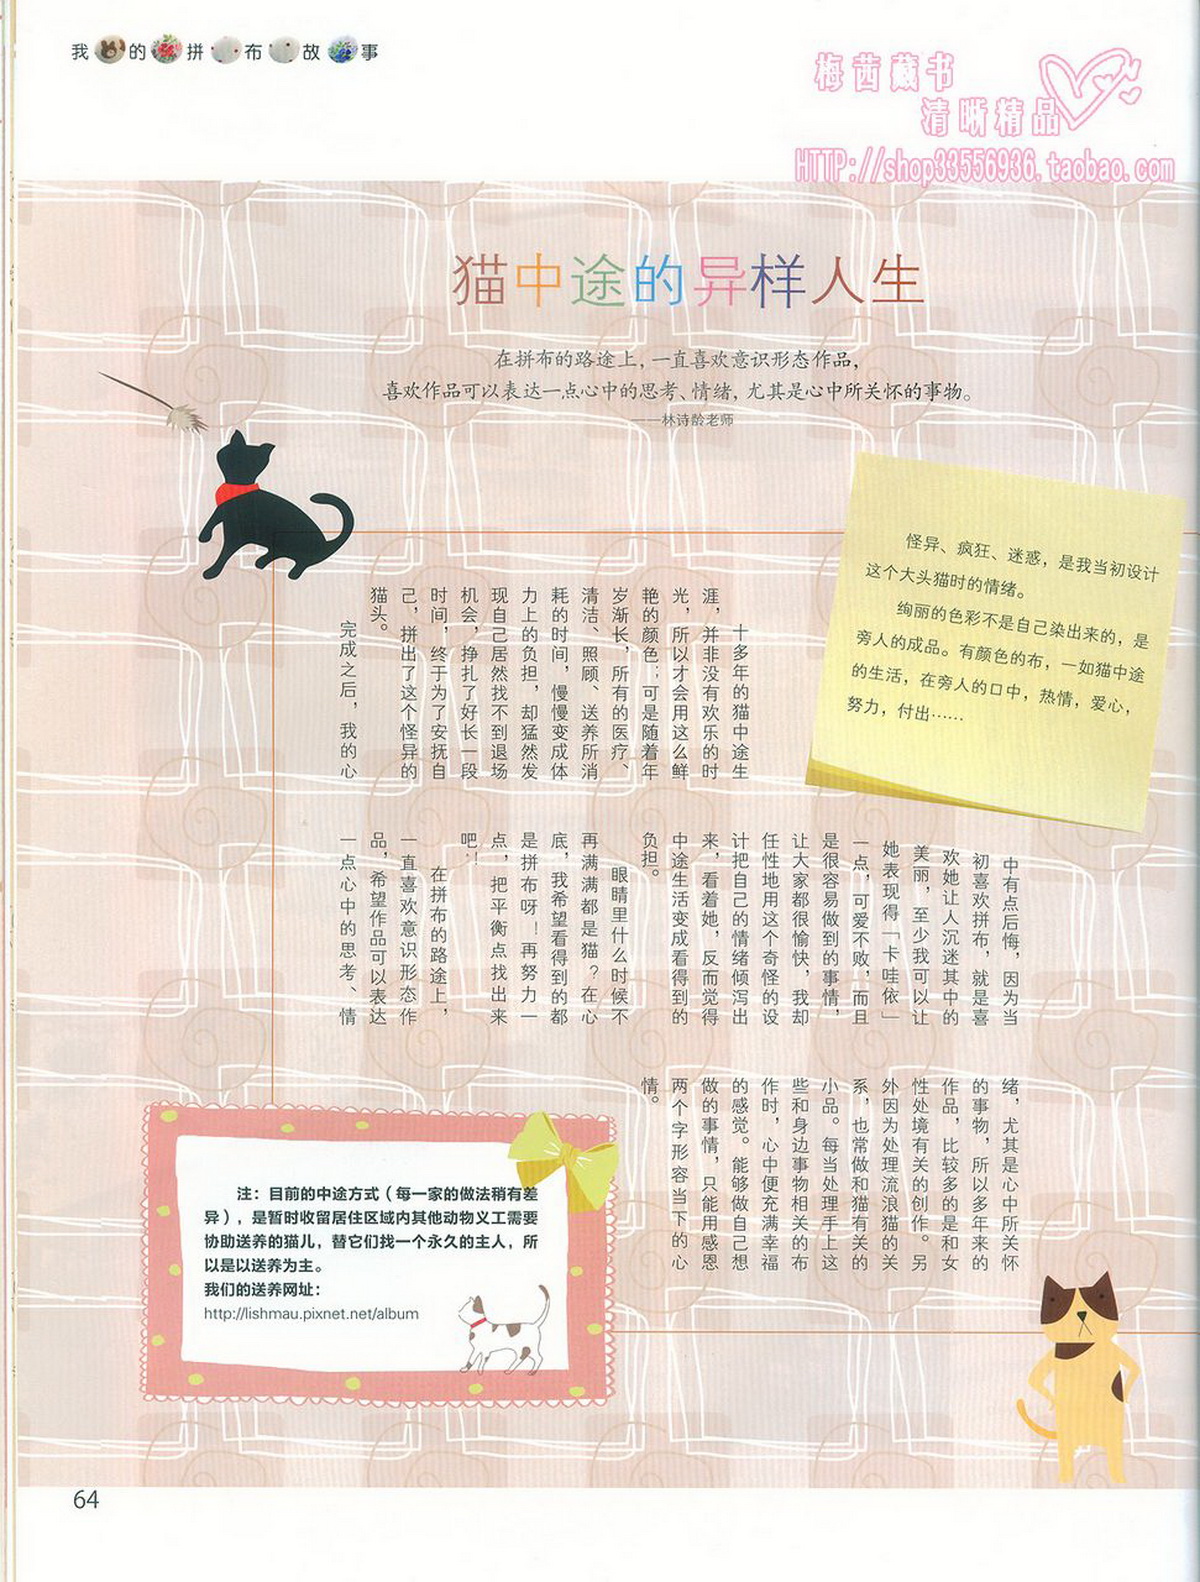 我的拼布故事
梅茜藏书
清晰精品
HTTP://shop33556936.taobao.com
猫中途的异样人生
在拼布的路途上，一直喜欢意识形态作品，
喜欢作品可以表达一点心中的思考、情绪，尤其是心中所关怀的事物。
——林诗龄老师
怪异、疯狂、迷惑，是我当初设计
这个大头猫时的情绪。
绚丽的色彩不是自己染出来的，是
旁人的成品。有颜色的布，一如猫中途
的生活，在旁人的口中，热情，爱心，
努力，付出……
十多年的猫中途生
涯，并非没有欢乐的时
光，所以才会用这么鲜
艳的颜色；可是随着年
岁渐长，所有的医疗、
清洁、照顾、送养所消
耗的时间，慢慢变成体
力上的负担，却猛然发
现自己居然找不到退场
机会，挣扎了好长一段
时间，终于为了安抚自
己，拼出了这个怪异的
猫头。
完成之后，我的心
中有点后悔，因为当
初喜欢拼布，就是喜
欢她让人沉迷其中的
美丽，至少我可以让
她表现得「卡哇依」
一点，可爱不败，而且
是很容易做到的事情，
让大家都很愉快，我却
任性地用这个奇怪的设
计把自己的情绪倾泻出
来，看着她，反而觉得
中途生活变成看得到的
负担。
眼睛里什么时候不
再满满都是猫？在心
底，我希望看得到的都
是拼布呀！再努力一
点，把平衡点找出来
吧！
在拼布的路途上，
一直喜欢意识形态作
品，希望作品可以表达
一点心中的思考、情
绪，尤其是心中所关怀
的事物，所以多年来的
作品，比较多的是和女
性处境有关的创作。另
外因为处理流浪猫的关
系，也常做和猫有关的
小品。每当处理手上这
些和身边事物相关的布
作时，心中便充满幸福
的感觉。能够做自己想
做的事情，只能用感恩
两个字形容当下的心
情。
注：目前的中途方式（每一家的做法稍有差
异），是暂时收留居住区域内其他动物义工需要
协助送养的猫儿，替它们找一个永久的主人，所
以是以送养为主。
我们的送养网址：
http://lishmau.pixnet.net/album
64